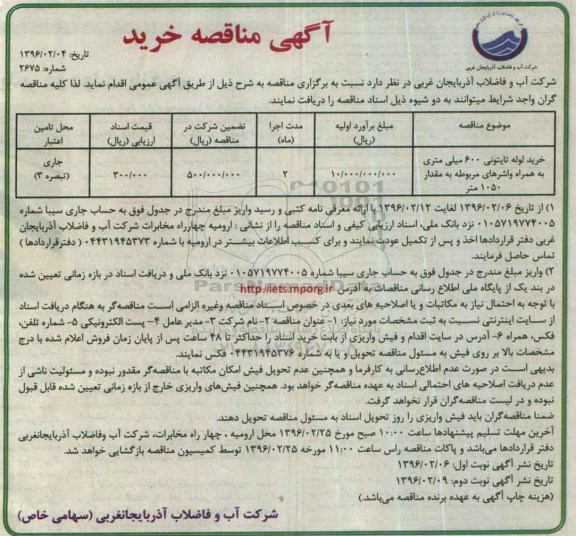 آگهی مناقصه خرید
شرکت آب و فاضلاب آذربایجان غربی
تاریخ: ۱۳۹۶/۰۲/۰۴
شماره: ۲۶۷۵
شرکت آب و فاضلاب آذربایجان غربی در نظر دارد نسبت به برگزاری مناقصه به شرح ذیل از طریق آگهی عمومی اقدام نماید. لذا کلیه مناقصه
گران واجد شرایط میتوانند به دو شیوه ذیل اسناد مناقصه را دریافت نمایند.
موضوع مناقصه | مبلغ برآورد اولیه (ریال) | مدت اجرا (ماه) | تضمین شرکت در مناقصه (ریال) | قیمت اسناد ارزیابی (ریال) | محل تامین اعتبار
خرید لوله تایتونی ۶۰۰ میلی متری به همراه واشرهای مربوطه به مقدار ۱۰۵۰ متر | ۱۰/۰۰۰/۰۰۰/۰۰۰ | ۲ | ۵۰۰/۰۰۰/۰۰۰ | ۳۰۰/۰۰۰ | جاری (تبصره ۳)
۱) از تاریخ ۱۳۹۶/۰۲/۰۶ لغایت ۱۳۹۶/۰۲/۱۲ با ارائه معرفی نامه کتبی و رسید واریز مبلغ مندرج در جدول فوق به حساب جاری سیبا شماره
۰۱۰۵۷۱۹۷۷۴۰۰۵ نزد بانک ملی، اسناد ارزیابی کیفی و اسناد مناقصه را از نشانی : ارومیه چهارراه مخابرات شرکت آب و فاضلاب آذربایجان
غربی دفتر قراردادها اخذ و پس از تکمیل عودت نمایند و برای کسب اطلاعات بیشتر در ارومیه با شماره ۰۴۴۳۱۹۴۵۳۷۳ (دفترقراردادها )
تماس حاصل فرمایند.
۲) واریز مبلغ مندرج در جدول فوق به حساب جاری سیبا شماره ۰۱۰۵۷۱۹۷۷۴۰۰۵ نزد بانک ملی و دریافت اسناد در بازه زمانی تعیین شده
در بند یک از پایگاه ملی اطلاع رسانی مناقصات به آدرس http://iets.mporg.ir
با توجه به احتمال نیاز به مکاتبات و یا اصلاحیه های بعدی در خصوص اسناد مناقصه وغیره الزامی است مناقصه‌گر به هنگام دریافت اسناد
از سایت اینترنتی نسبت به ثبت مشخصات مورد نیاز: ۱- عنوان مناقصه ۲- نام شرکت ۳- مدیر عامل ۴- پست الکترونیکی ۵- شماره تلفن،
فکس، همراه ۶- آدرس در سایت اقدام و فیش واریزی از بابت خرید اسناد را حداکثر تا ۴۸ ساعت پس از پایان زمان فروش اعلام شده با درج
مشخصات بالا بر روی فیش به مسئول مناقصه تحویل و یا به شماره ۰۴۴۳۱۹۴۵۳۷۶ فکس نمایند.
بدیهی است در صورت عدم اطلاع‌رسانی به کارفرما و همچنین عدم تحویل فیش امکان مکاتبه با مناقصه‌گر مقدور نبوده و مسئولیت ناشی از
عدم دریافت اصلاحیه های احتمالی اسناد به عهده مناقصه‌گر خواهد بود. همچنین فیش‌های واریزی خارج از بازه زمانی تعیین شده قابل قبول
نبوده و در لیست مناقصه‌گران قرار نخواهد گرفت.
ضمنا مناقصه‌گران باید فیش واریزی را روز تحویل اسناد به مسئول مناقصه تحویل دهند.
آخرین مهلت تسلیم پیشنهادها ساعت ۱۰:۰۰ صبح مورخ ۱۳۹۶/۰۲/۲۵ محل ارومیه ، چهار راه مخابرات، شرکت آب وفاضلاب آذربایجانغربی
دفتر قراردادها میباشد و پاکات مناقصه راس ساعت ۱۱:۰۰ مورخه ۱۳۹۶/۰۲/۲۵ توسط کمیسیون مناقصه بازگشایی خواهد شد.
تاریخ نشر آگهی نوبت اول: ۱۳۹۶/۰۲/۰۶
تاریخ نشر آگهی نوبت دوم: ۱۳۹۶/۰۲/۰۹
(هزینه چاپ آگهی به عهده برنده مناقصه می‌باشد.)
شرکت آب و فاضلاب آذربایجانغربی (سهامی خاص)